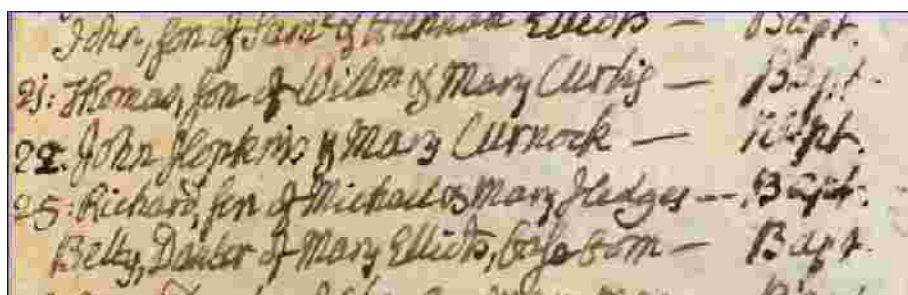 John, son of Sam.l & Hannah Elliots — Bapt.
21: Thomas, son of Willm & Mary Curtis — Bapt.
22. John Hopkins & Mary Curnock —
25: Richard, son of Michael & Mary Hedges — Bapt.
Betty, Dauter of Mary Elliots, base born — Bapt.